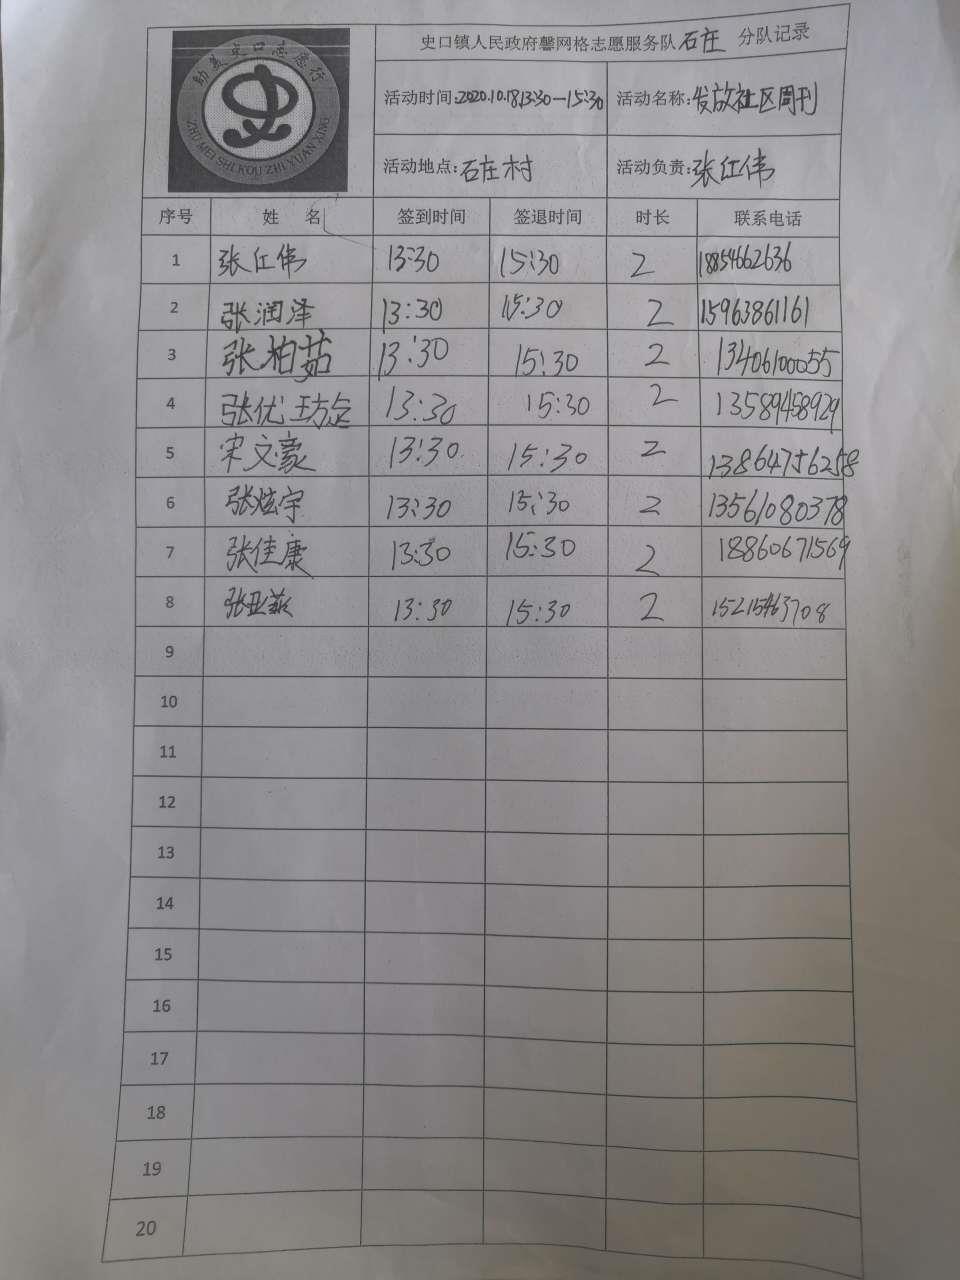 助美史口志愿行
ZHU MEI SHI KOU ZHI YUAN XING
史口镇人民政府馨网格志愿服务队石庄 分队记录
活动时间:2020.10.18,13:30—15:30 活动名称:发放社区周刊
活动地点:石庄村 活动负责:张红伟
序号 姓 名 签到时间 签退时间 时长 联系电话
1 张红伟 13:30 15:30 2 18854662636
2 张润泽 13:30 15:30 2 15963861161
3 张柏茹 13:30 15:30 2 13406100055
4 张优 13:30 15:30 2 13589458929
5 宋文豪 13:30 15:30 2 13864756258
6 张炫宇 13:30 15:30 2 13561080378
7 张佳康 13:30 15:30 2 18860671569
8 张亚 13:30 15:30 2 15215463708
9
10
11
12
13
14
15
16
17
18
19
20